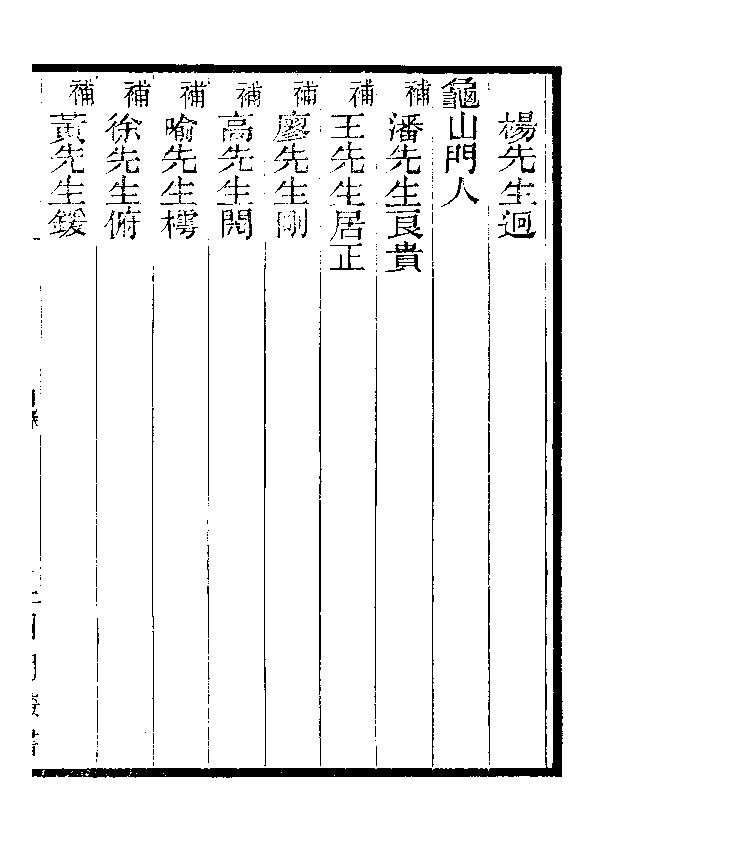 楊先生迴
龜山門人
補潘先生良貴
補王先生居正
補廖先生剛
補高先生閌
補喻先生樗
補徐先生俯
補黃先生鍰